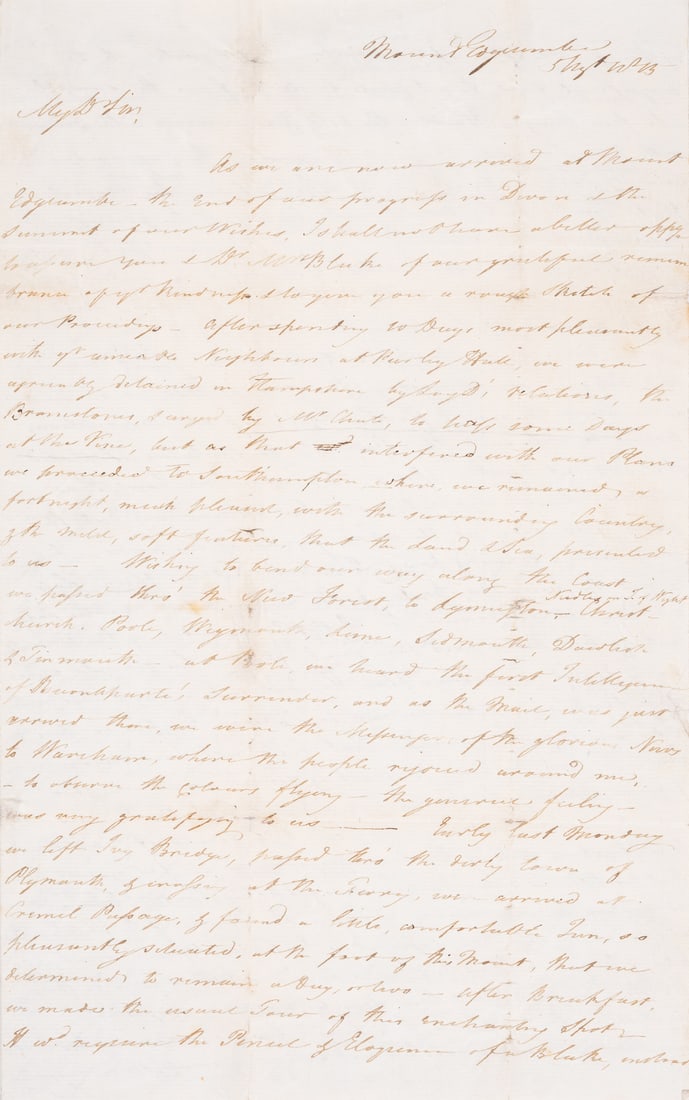 Mount Edgcumbe
5 Augt 1815
My Dr Sir,
As we are now arrived at Mount
Edgcumbe - the End of our progress in Devon & the
Summit of our Wishes, I shall not have a better oppy
to assure you & Dr Mrs Blake of our grateful remem
brance of yr kindness & to give you a rough Sketch of
our Proceedings - After spending 10 Days most pleasantly
with yr amiable Neighbours at Purley Hall, we were
agreeably detained in Hampshire by relations, the
Bramstones, & urged by Mr Chute, to pass some Days
at the Vine, but as that interfered with our Plans
we proceeded to Southampton, where, we remained a
fortnight, much pleased, with the surrounding Country,
& the mild, soft features, that the Land & Sea, presented
to us - Wishing to bend our way along the Coast
we passed thro' the New Forest, to Lymington, Christ-
Needles in I. of Wight
church. Poole, Weymouth, Lime, Sidmouth, Dawlish
& Tinmouth - at Poole, we heard the first Intelligence
of Buonaparte's Surrender, and as the Mail, was just
arrived there, we were the Messengers of the glorious News
to Wareham, where the people rejoiced around me,
- to observe the colours flying - the general feeling -
was very gratifying to us - Early last Monday
we left Ivy Bridge, passed thro' the dirty town of
Plymouth, & crossing at the Ferry, we arrived at
Cremel Passage, & found a little, comfortable Inn, so
pleasantly situated, at the foot of this Mount, that we
determined to remain a Day, or two - After Breakfast,
we made the usual Tour of this enchanting Spot -
It wd require the Pencil & Eloquence of a Blake, instead